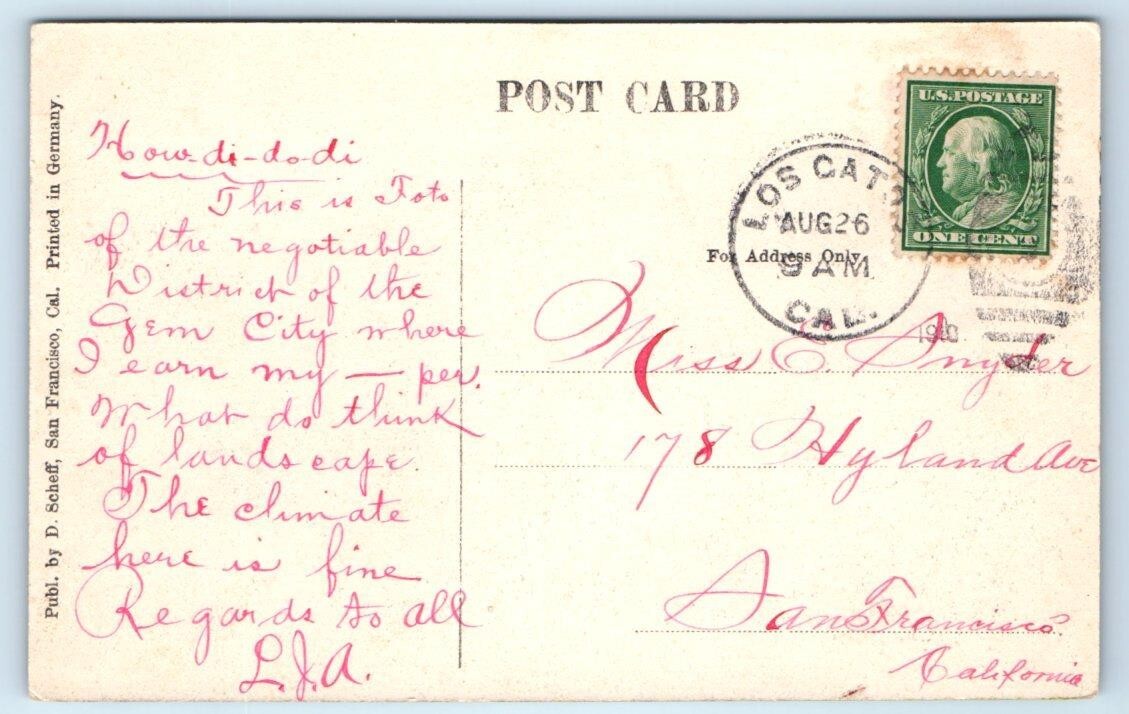 POST CARD
U.S. POSTAGE
ONE CENT
LOS GAT
AUG 26
9 AM
CAL.
1910
For Address Only.
Publ. by D. Scheff, San Francisco, Cal. Printed in Germany.
How-di-do-di
This is Foto
of the negotiable
District of the
Gem City where
I earn my — per.
What do think
of landscape.
The climate
here is fine
Regards to all
L.J.A.
Miss C. Snyder
178 Hyland Ave
San Francisco
California